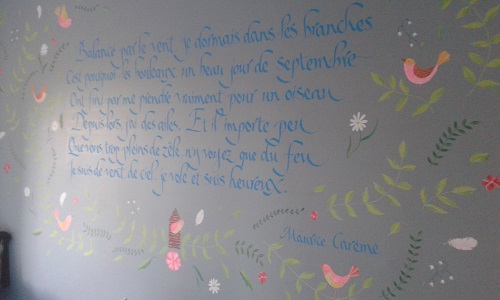 Balancé par le vent, je dormais dans les branches
C'est pourquoi les bouleaux, un beau jour de septembre
Ont fini par me prendre vraiment pour un oiseau
Depuis lors, j'ai des ailes. Et il importe peu
Que vous, trop pleins de zèle, n'y voyez que du feu
Je suis de vent, de ciel, je vole et suis heureux.
Maurice Carême